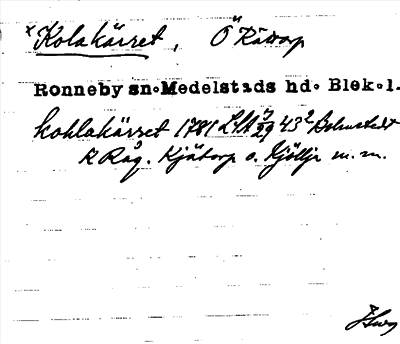 x Kolakärret, Ö Rättorp
Ronneby sn. Medelstads hd. Blek. l.
Kohlakärret 1781 LSA 7/29 43² Bolmstedt
R Råg. Kjätorp o. Kjöllje m. m.